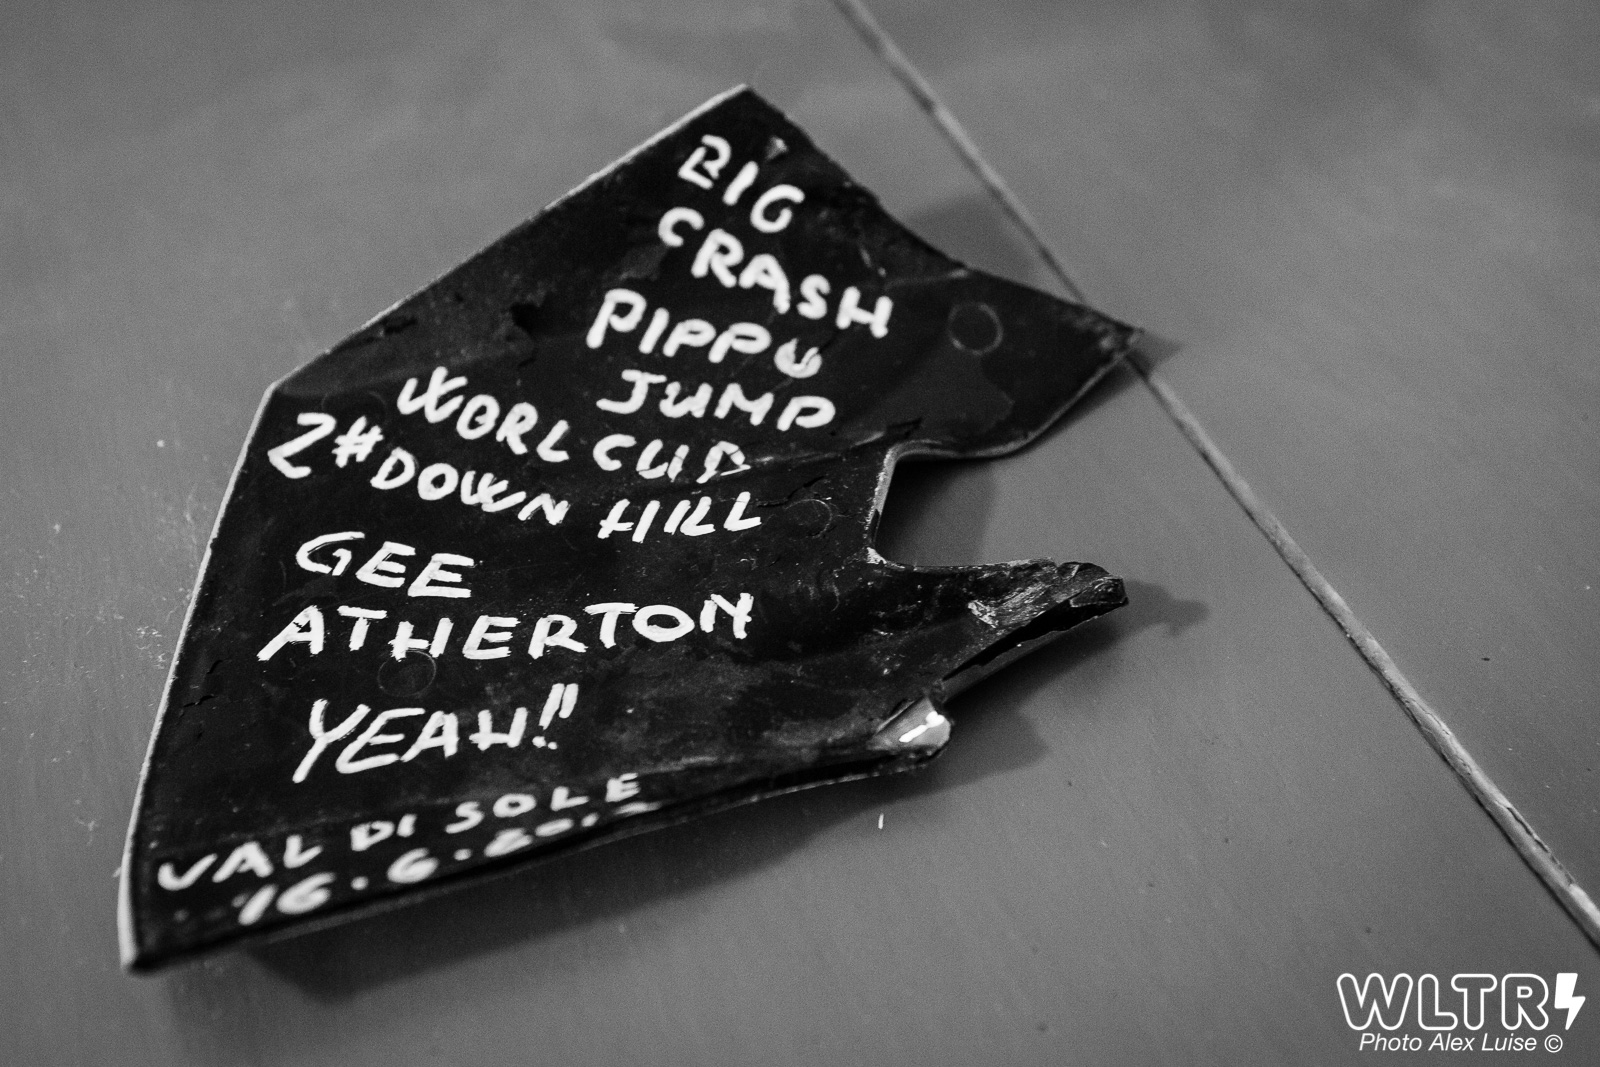 BIG
CRASH
PIPPO
JUMP
WORL CUP
2# DOWN HILL
GEE
ATHERTON
YEAH!!
VAL DI SOLE
16.6.
WLTR
Photo Alex Luise ©